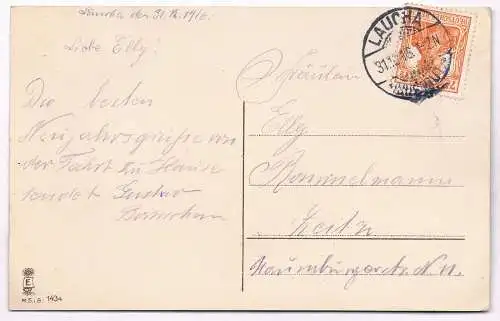 Laucha den 31.12.1916.
Liebe Elly!
Die besten
Neujahrsgrüße von
der Fahrt zu Hause
sendet Gustav
Fräulein
Elly
Hammelmann
Zeitz
Naumburgerstr.
LAUCHA
31.12.16
E
M.S.i.B. 1434